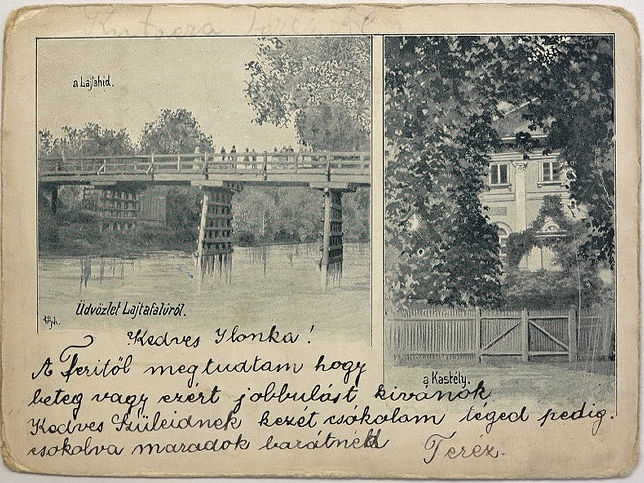 a Lajtahid.
Üdvözlet Lajtafaluról.
a Kastély.
Kedves Ilonka!
A Feritől megtudtam hogy
beteg vagy ezért jobbulást kivánok
Kedves Szüleidnek kezét csókolam téged pedig.
csokolva maradok barátnéd
Teréz.